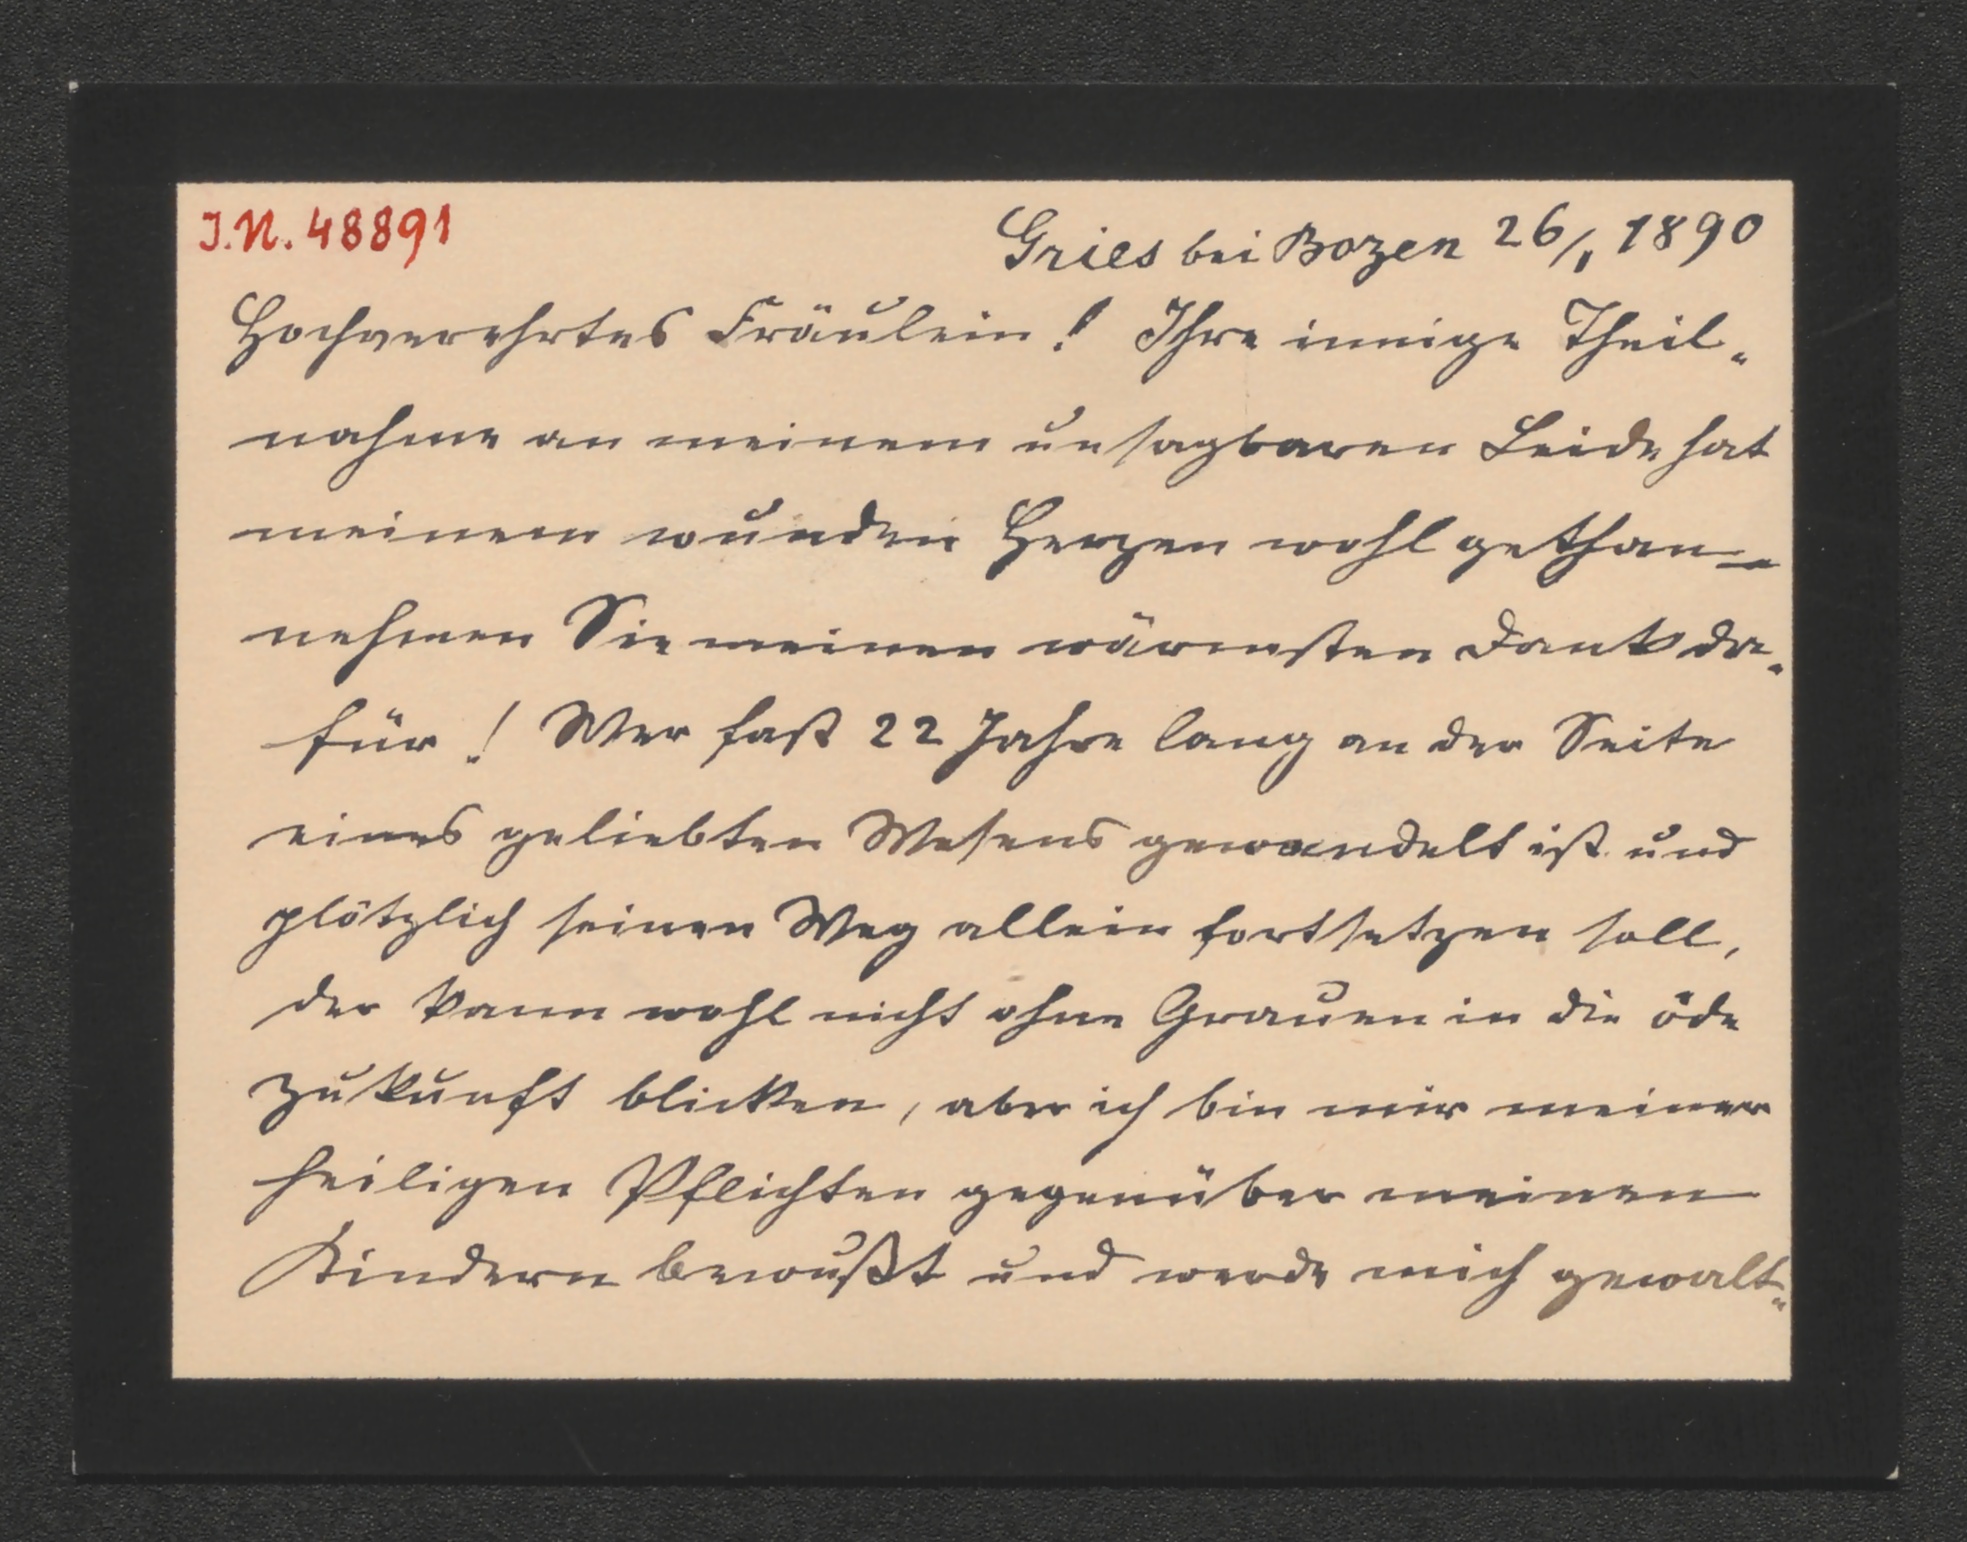 I.N. 48891
Gries bei Bozen 26/1 1890
Hochverehrtes Fräulein! Ihre innige Theil-
nahme an meinem unsagbaren Leide hat
meinem wunden Herzen wohl gethan –
nehmen Sie meinen wärmsten Dank da-
für! Wer fast 22 Jahre lang an der Seite
eines geliebten Wesens gewandelt ist und
plötzlich seinen Weg allein fortsetzen soll,
der kann wohl nicht ohne Grauen in die öde
Zukunft blicken, aber ich bin mir meiner
heiligen Pflichten gegenüber meinen
Kindern bewußt und werde mich gewalt-